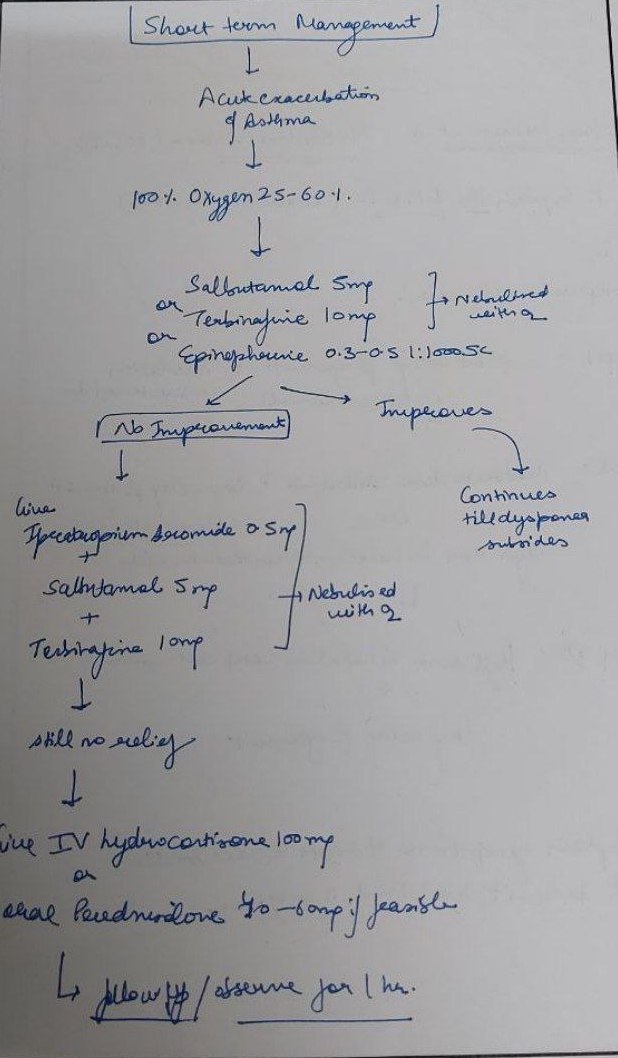 Short term Management
Acute exacerbation
of Asthma
100% Oxygen 25-60%.
Salbutamol 5mg
or Terbinafine 10mg
or Epinephrine 0.3-0.5 1:1000 SC
Nebulised
with O2
No Improvement
Improves
Continues
till dysponea
subsides
Give
Ipratropium bromide 0.5mg
+
Salbutamol 5mg
+
Terbinafine 10mg
Nebulised
with O2
still no relief
Give IV hydrocortisone 100mg
or
oral Prednisolone 40-60mg if feasible
follow up / observe for 1 hr.